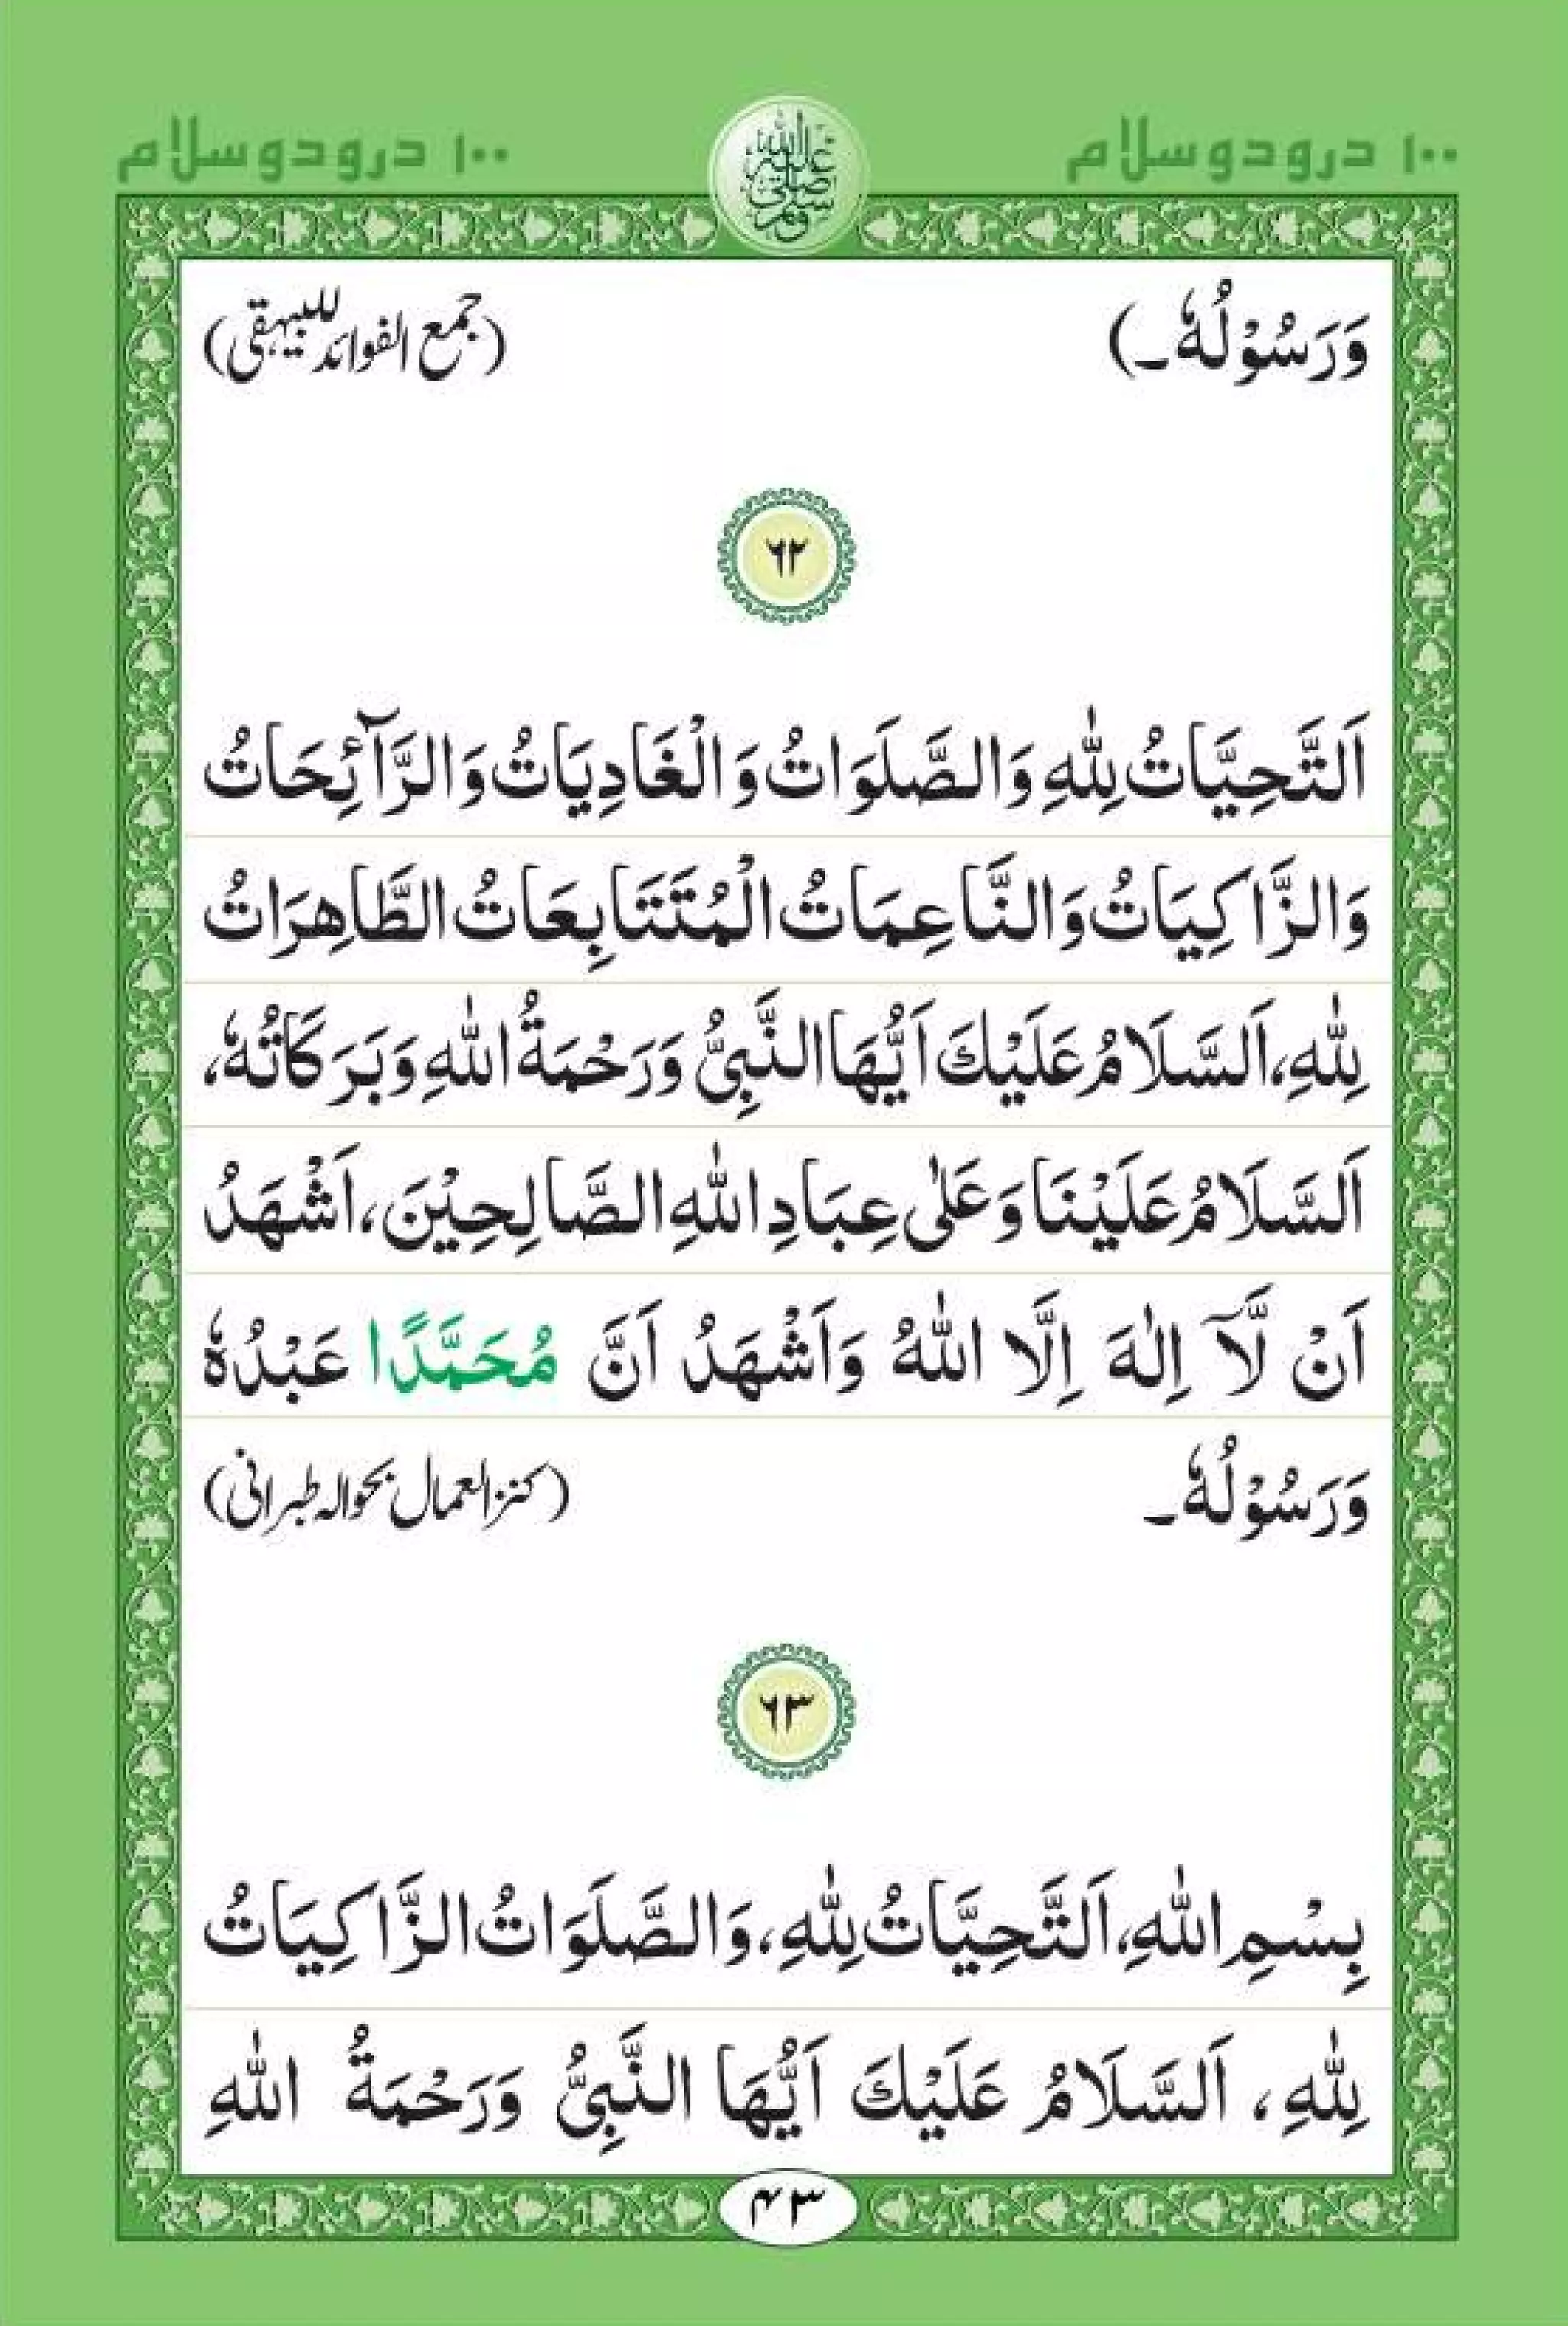 ۱۰۰ درود و سلام ۱۰۰ درود و سلام
صلی اللہ علیہ وسلم
وَرَسُوْلُهٗ۔) (جمع الفوائد للبیہقی)
۶۲
اَلتَّحِيَّاتُ لِلّٰهِ وَالصَّلَوَاتُ وَالْغَادِيَاتُ وَالرَّآئِحَاتُ
وَالزَّاكِيَاتُ وَالنَّاعِمَاتُ الْمُتَتَابِعَاتُ الطَّاهِرَاتُ
لِلّٰهِ، اَلسَّلَامُ عَلَيْكَ اَيُّهَا النَّبِيُّ وَرَحْمَةُ اللّٰهِ وَبَرَكَاتُهٗ،
اَلسَّلَامُ عَلَيْنَا وَعَلٰى عِبَادِ اللّٰهِ الصَّالِحِيْنَ، اَشْهَدُ
اَنْ لَّآ اِلٰهَ اِلَّا اللّٰهُ وَاَشْهَدُ اَنَّ مُحَمَّدًا عَبْدُهٗ
وَرَسُوْلُهٗ۔ (کنز العمال بحوالہ طبرانی)
۶۳
بِسْمِ اللّٰهِ، اَلتَّحِيَّاتُ لِلّٰهِ، وَالصَّلَوَاتُ الزَّاكِيَاتُ
لِلّٰهِ، اَلسَّلَامُ عَلَيْكَ اَيُّهَا النَّبِيُّ وَرَحْمَةُ اللّٰهِ
۴۳